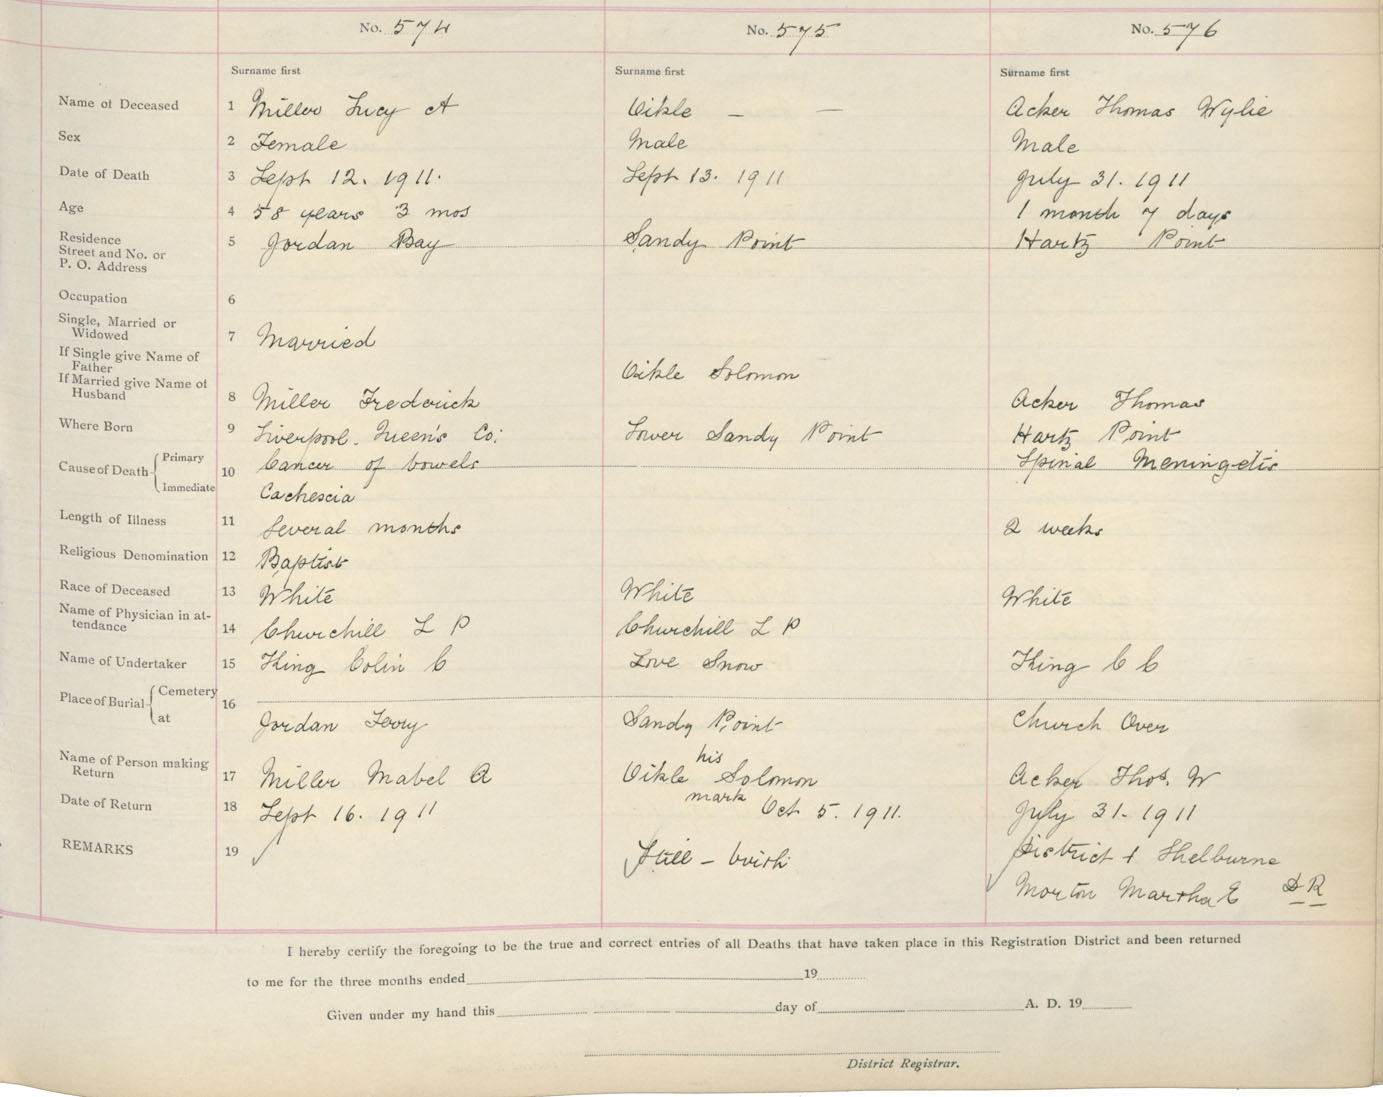 No. 574 No. 575 No. 576
Surname first Surname first Surname first
Name of Deceased 1 Miller Lucy A Oikle — — Acker Thomas Wylie
Sex 2 Female Male Male
Date of Death 3 Sept 12. 1911. Sept 13. 1911 July 31. 1911
Age 4 58 years 3 mos 1 month 7 days
Residence
Street and No. or
P. O. Address
5 Jordan Bay Sandy Point Hartz Point
Occupation 6
Single, Married or
Widowed
7 Married
If Single give Name of
Father
Oikle Solomon
If Married give Name of
Husband
8 Miller Frederick Acker Thomas
Where Born 9 Liverpool. Queen's Co. Lower Sandy Point Hartz Point
Cause of Death Primary 10 Cancer of bowels Spinal Meningetis
Immediate Cachescia
Length of Illness 11 Several months 2 weeks
Religious Denomination 12 Baptist
Race of Deceased 13 White White White
Name of Physician in at-
tendance
14 Churchill L P Churchill L P
Name of Undertaker 15 King Colin C Love Snow King C C
Place of Burial Cemetery 16
at Jordan Ferry Sandy Point Church Over
Name of Person making
Return
17 Miller Mabel A Oikle his Solomon Acker Thos. W
mark
Date of Return 18 Sept 16. 1911 Oct 5. 1911. July 31. 1911
REMARKS 19 Still - birth District 1 Shelburne
Morton Martha E D R
I hereby certify the foregoing to be the true and correct entries of all Deaths that have taken place in this Registration District and been returned
to me for the three months ended 19
Given under my hand this day of A. D. 19
District Registrar.